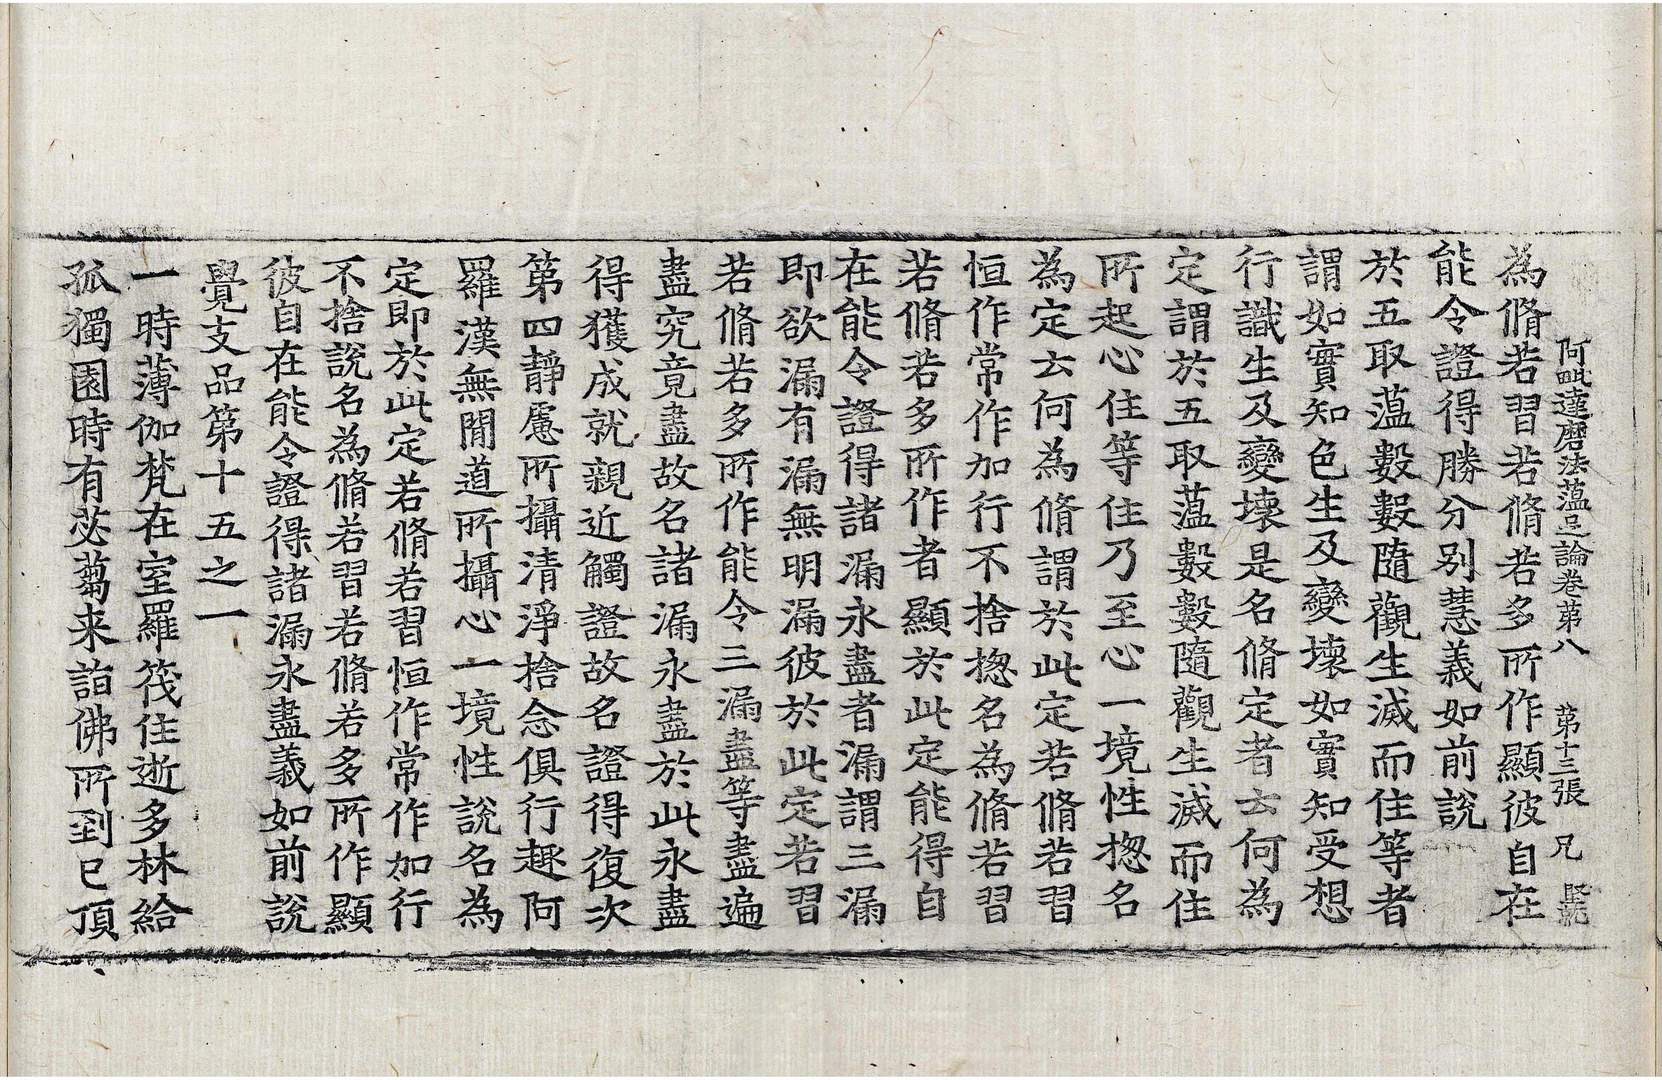 阿毗達磨法蘊足論卷第八　第十三張　兄
為脩若習若脩若多所作顯彼自在
能令證得勝分別慧義如前說
於五取蘊數數隨觀生滅而住等者
謂如實知色生及變壞如實知受想
行識生及變壞是名脩定者云何為
定謂於五取蘊數數隨觀生滅而住
所起心住等住乃至心一境性揔名
為定云何為脩謂於此定若脩若習
恒作常作加行不捨揔名為脩若習
若脩若多所作者顯於此定能得自
在能令證得諸漏永盡者漏謂三漏
即欲漏有漏無明漏彼於此定若習
若脩若多所作能令三漏盡等盡遍
盡究竟盡故名諸漏永盡於此永盡
得獲成就親近觸證故名證得復次
第四靜慮所攝清淨捨念俱行趣阿
羅漢無間道所攝心一境性說名為
定即於此定若脩若習恒作常作加行
不捨說名為脩若習若脩若多所作顯
彼自在能令證得諸漏永盡義如前說
覺支品第十五之一
一時薄伽梵在室羅筏住逝多林給
孤獨園時有苾蒭来詣佛所到已頂